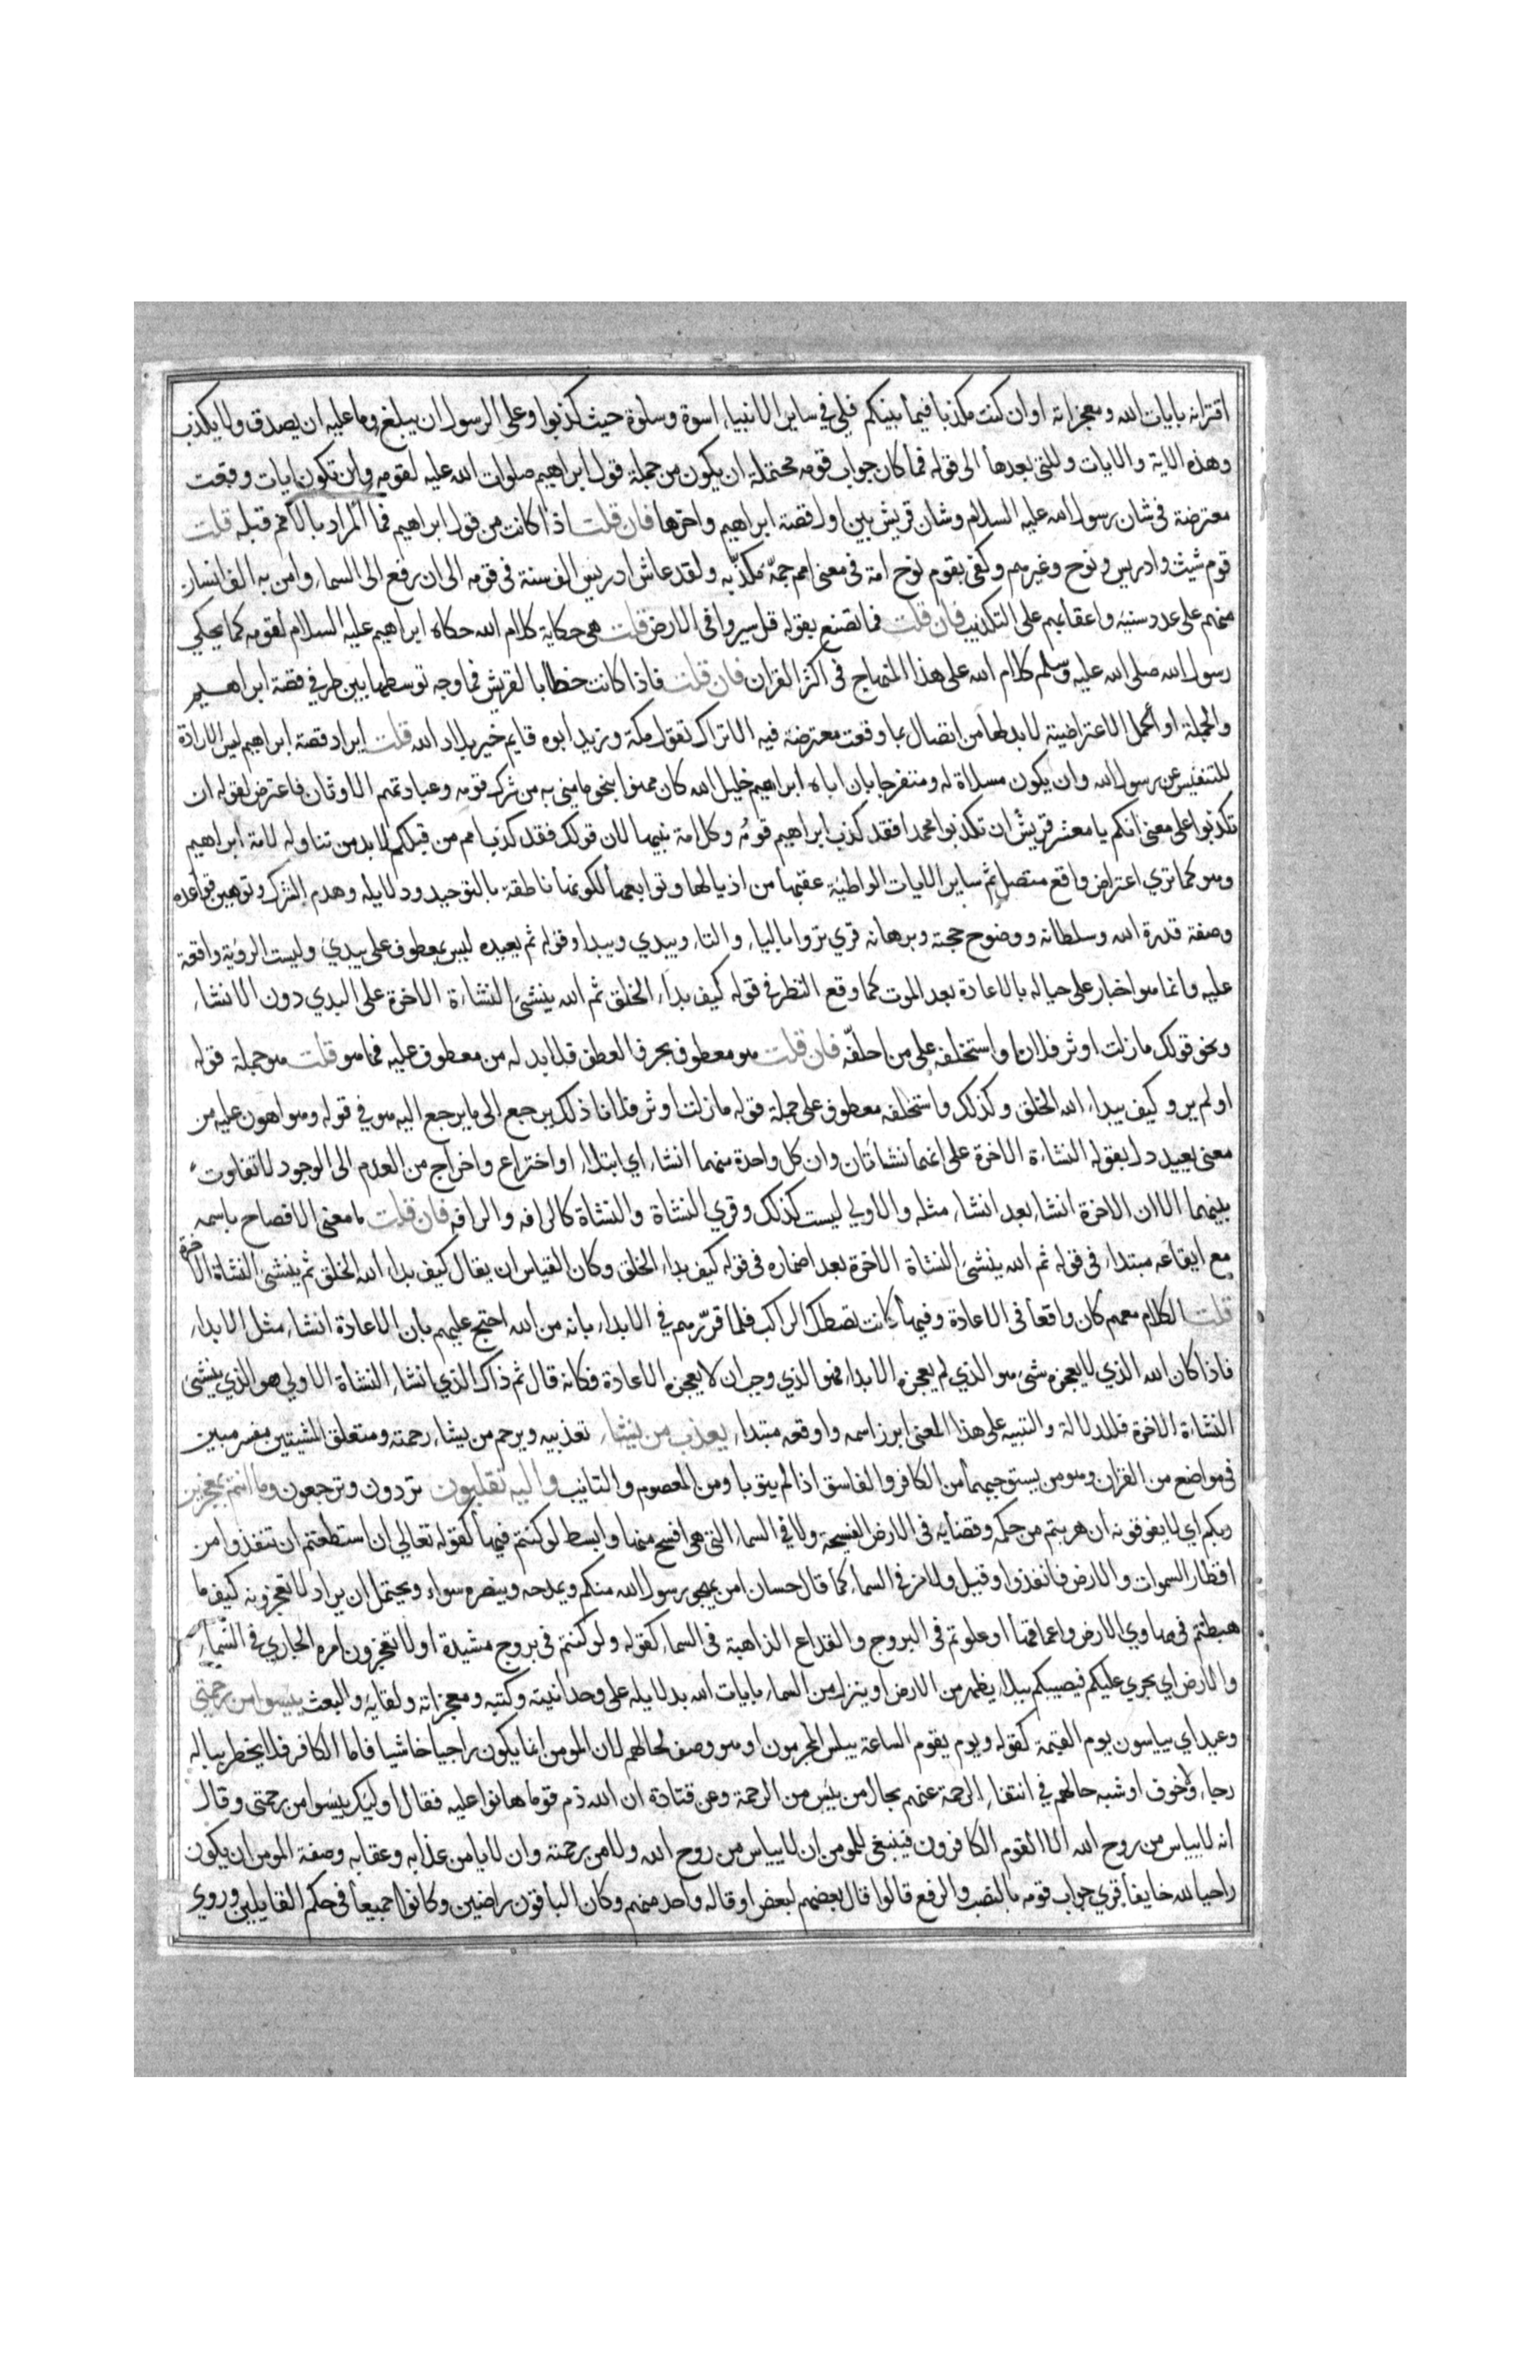 اقترانه بايات الله ومعجزاته او ان كنت مكذبا فيما بينكم فلي في ساير الانبياء اسوة وسلوة حيث كذبوا وعلى الرسول ان يبلغ وما عليه ان يصدق ولا يكذب
وهذه الاية والايات والتي بعدها الى قوله فما كان جواب قومه محتملة ان يكون من جملة قول ابراهيم صلوات الله عليه لقومه وان تكون ايات وقعت
معترضة في شان رسول الله عليه السلام وشان قريش بين اول قصة ابراهيم واخرها فان قلت اذا كانت من قول ابراهيم فما المراد بالامم قبله قلت
قوم شيث وادريس ونوح وغيرهم وكفى بقوم نوح امة في معنى امم جمّة مكذّبه ولقد عاش ادريس الف سنة في قومه الى ان رفع الى السماء وامن به الف انسان
منهم على عدد سنيه واعقابهم على التكذيب فان قلت فما تصنع بقوله قل سيروا في الارض قلت هي حكاية كلام الله حكاه ابراهيم عليه السلام لقومه كما يحكي
رسول الله صلى الله عليه وسلم كلام الله على هذا المنهاج في اكثر القران فان قلت فاذا كانت خطابا لقريش فما وجه توسطها بين طرفي قصة ابراهيم
والجملة او الجمل الاعتراضية لا بد لها من اتصال بما وقعت معترضة فيه الا تراك تقول مكة وزيد ابوه قايم خير بلاد الله قلت ايراد قصة ابراهيم ليس الا ارادة
للتنفيس عن رسول الله وان يكون مسلاة له ومتفرجا بان اباه ابراهيم خليل الله كان ممنوا بنحو ما مني به من شرك قومه وعبادتهم الاوثان فاعترض بقوله ان
تكذبوا على معنى انكم يا معشر قريش ان تكذبوا محمدا فقد كذب ابراهيم قومُه وكل امة نبيها لان قولك فقد كذب امم من قبلكم لا بد من تناوله لامة ابراهيم
وهو كما تري اعتراض واقع متصل ثم ساير الايات الواطئة عقبها من اذيالها وتوابعها لكونها ناطقة بالتوحيد ودلايله وهدم الشرك وتوهين قواعده
وصفة قدرة الله وسلطانه ووضوح حجته وبرهانه قري تروا بالياء والتاء ويبدي ويبدا وقوله ثم يعيده ليس بمعطوف على يبديء وليست الرؤية واقعة
عليه وانما هو اخبار على حياله بالاعادة بعد الموت كما وقع النظر في قوله كيف بداء الخلق ثم الله ينشئ النشاءة الاخرة على البدي دون الانشاء
ونحو قولك ما زلت اوثر فلانا واستخلفه على من اخلّفه فان قلت هو معطوف بحرف العطف فلا بد له من معطوف عليه فما هو قلت هو جملة قوله
اولم يرو كيف يبداء الله الخلق وكذلك واستخلفه معطوف على جملة قوله ما زلت اوثر فلانا ذلك يرجع الى ما يرجع اليه هو في قوله وهو اهون عليه من
معنى يعيد دل بقوله النشاءة الاخرة على انهما نشاءتان وان كل واحدة منهما انشاء اي ابتداء او اختراع واخراج من العدم الى الوجود لا تفاوت
بينهما الا ان الاخرة انشاء بعد انشاء مثله والاولي ليست كذلك وقري النشاة والنشاة كالرافه والرافه فان قلت ما معنى الافصاح باسمه
مع ايقاعه مبتداء في قوله ثم الله ينشئ النشاة الاخرة بعد اضماره في قوله كيف بداء الخلق وكان القياس ان يقال كيف بداء الله الخلق ثم ينشئ النشاة الاخرة
قلت الكلام معهم كان واقعا في الاعادة وفيها كانت تصطك الركب فلما قرّرهم في الابداء بانه من الله احتج عليهم بان الاعادة انشاء مثل الابداء
فاذا كان الله الذي لا يعجزه شئ هو الذي لم يعجزه الابداء فهو الذي وجب ان لا يعجزه الاعادة فكانه قال ثم ذاك الذي انشا النشاة الاولي هو الذي ينشئ
النشاءة الاخرة فللدلالة والتنبيه على هذا المعنى ابرز اسمه واوقعه مبتداء يعذب من يشاء تعذيبه ويرحم من يشاء رحمته ومتعلق المشيتين مفسر مبين
في مواضع من القران وهو من يستوجبهما من الكافر والفاسق اذا لم يتوبا ومن المعصوم والتايب واليه تقلبون تردون وترجعون وما انتم بمعجزين
ربكم اي لا يفوقونه ان هربتم من حكمه وقضايه في الارض الفسيحة ولا في السماء التي هي افسح منها وابسط لو كنتم فيها كقوله تعالي ان استطعتم ان تنفذوا من
اقطار السموات والارض فانفذوا وقيل ولا من في السماء كما قال حسان امن يهجو رسول الله منكم ويمدحه وينصره سواء ويحتمل ان يراد لا تعجزونه كيف ما
هبطتم في مهاوي الارض واعماقها او علوتم في البروج والقلاع الذاهبة في السماء كقوله ولو كنتم في بروج مشيدة او لا تعجزون امره الجاري في السماء
والارض اي يجري عليكم فيصيبكم ببلاء يظهر من الارض او ينزل من السماء بايات الله بدلايله على وحدانيته وكتبه ومعجزاته ولقايه والبعث ييئسوا من رحمتي
وعيد اي يياسون يوم القيمة كقوله ويوم يقوم الساعة يبلس المجرمون او هو وصف لحالهم لان المومن انما يكون راجيا خاشيا فاما الكافر فلا يخطر بباله
رجاء ولا خوف او شبه حالهم في انتفاء الرحمة عنهم بحال من يئس من الرحمة وعن قتادة ان الله ذم قوما هانوا عليه فقال اوليك يئسوا من رحمتي وقال
انه لا يياس من روح الله الا القوم الكافرون فينبغي للمومن ان لا يياس من روح الله ولا من رحمته وان لا يامن عذابه وعقابه وصفة المومن ان يكون
راجيا لله خايفا قري جواب قومه بالنصب والرفع قالوا قال بعضهم لبعض او قاله واحد منهم وكان الباقون راضين وكانوا جميعا في حكم القايلين وروي